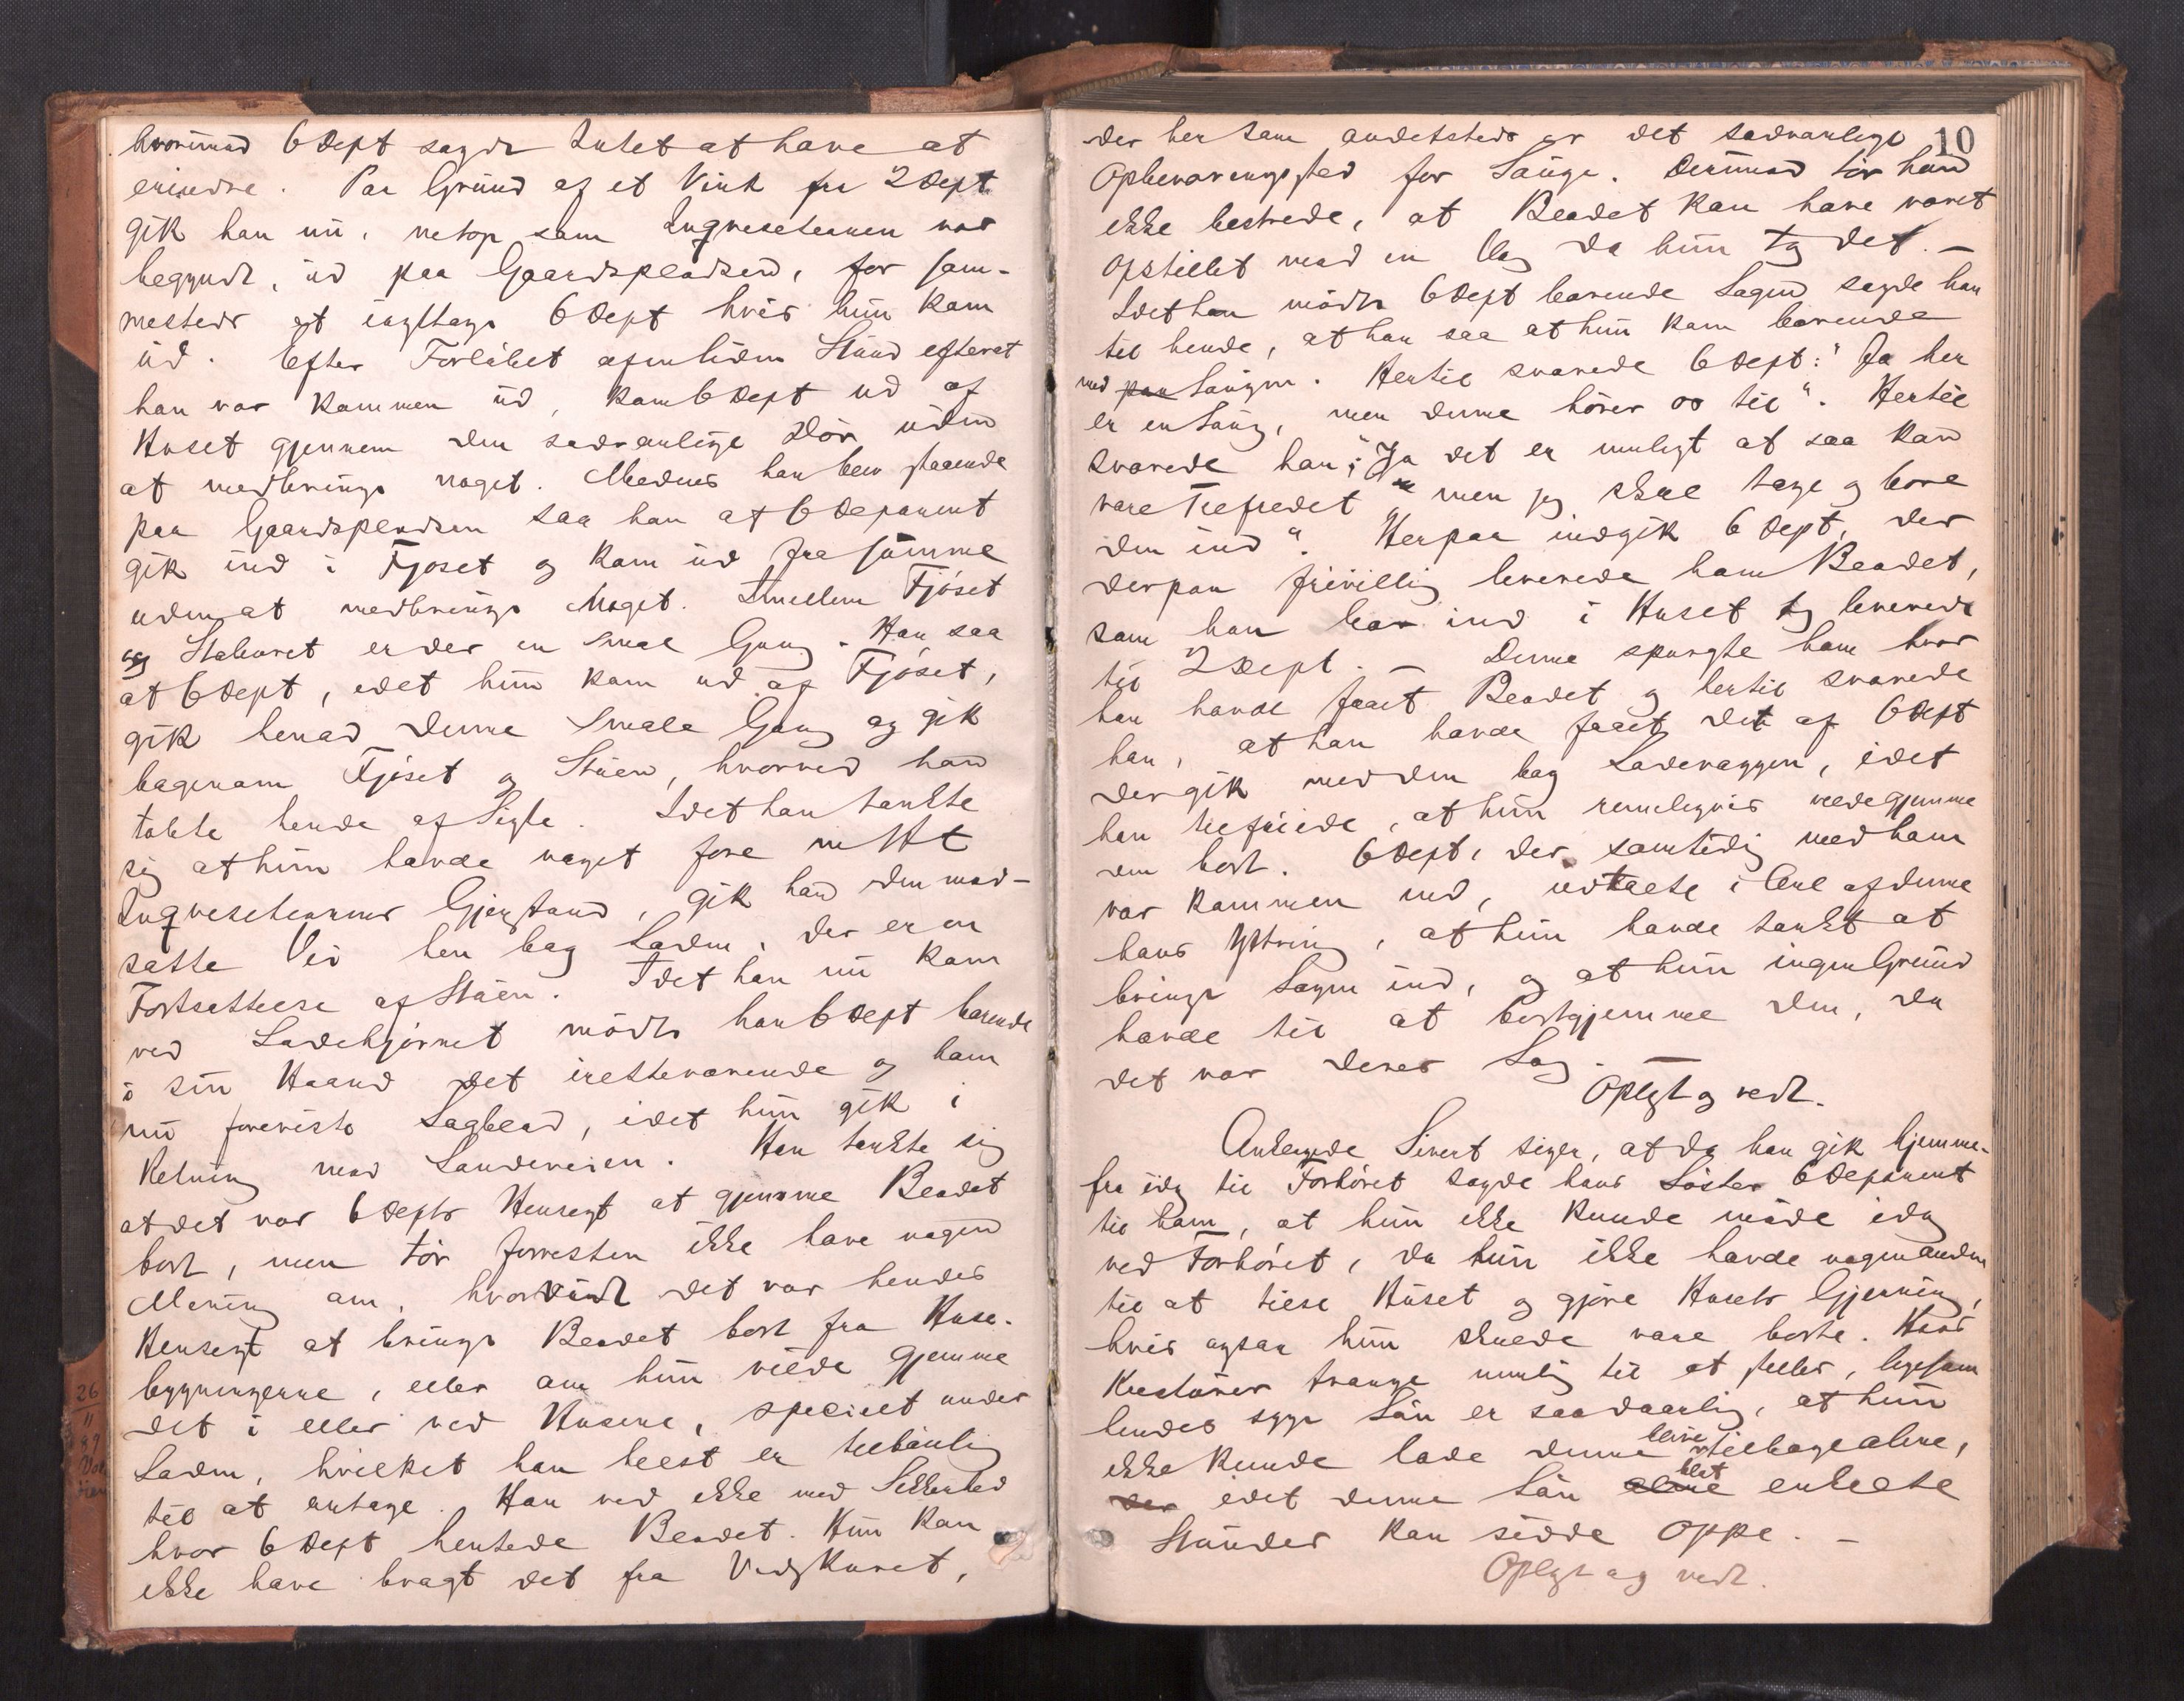 hvorimod 6 Dept sagde Intet at have at
erindre. Paa Grund af et Vink fra 2 Dept
gik han nu, netop som Inqvisitionen var
begyndt, ud paa Gaardspladsen, for sam-
mesteds at iagttage 6 Dept hvis hun kom
ud. Efter Forløbet af en liden Stund efterat
han var kommen ud, kom 6 Dept ud af
Huset gjennem den sædvanlige Dør uden
at medbringe noget. Medens han blev staaende
paa Gaardspladsen saa han at 6 Deponent
gik ind i Fjøset og kom ud fra samme
uden at medbringe Noget. Imellem Fjøset
og Staburet er der en smal Gang. Han saa
at 6 Dept, idet hun kom ud af Fjøset,
gik henad denne smale Gang og gik
bagenom Fjøset og Skuen, hvorved han
tabte hende af Sigte. Idet han tænkte
sig at hun havde noget fore med
Inqvisitionens Gjenstand, gik han den mod-
satte Vei hen bag Laden, der er en
Fortsættelse af Skuen. Idet han nu kom
ved Ladehjørnet mødte han 6 Dept bærende
i sin Haand det iretteværende og ham
nu foreviste Sagblad, idet hun gik i
Retning mod Landeveien. Han tænkte sig
at det var 6 Depts Hensigt at gjemme Bladet
bort, men tør forresten ikke have nogen
Mening om, hvorvidt det var hendes
Hensigt at bringe Bladet bort fra Huse-
bygningerne, eller om hun vilde gjemme
det i eller ved Husene, specielt under
Laden, hvilket han helst er tilbøielig
til at antage. Han ved ikke med Sikkerhed
hvor 6 Dept hentede Bladet. Hun kan
ikke have bragt det fra Vedskuret,
26
11
89
10
der her som andetsteds er det sædvanlige
Opbevaringssted for Sauge. Derimod tør han
ikke bestride, at Bladet kan have været
opstillet mod en Væg da hun tog det. –
Idet han mødte 6 Dept bærende Sagen sagde han
til hende, at han saa at hun kom bærende
med paa Saugen. Hertil svarede 6 Dept: "Ja her
er en Saug, men denne hører os til". Hertil
svarede han: "Ja det er muligt at saa kan
være Tilfældet" "men jeg skal tage og bære
den ind". Herpaa indgik 6 Dept, der
derpaa frivillig leverede ham Bladet,
som han bar ind i Huset og leverede
til 2 Dept. – Denne spurgte ham hvor
han havde faaet Bladet og hertil svarede
han, at han havde faaet det af 6 Dept
der gik med den bag Ladevæggen, idet
han tilføiede, at hun rimeligvis vilde gjemme
den bort. 6 Dept, der samtidig med ham
var kommen ind, udtalte i Anl af denne
hans Yttring, at hun havde tænkt at
bringe Sagen ind, og at hun ingen Grund
havde til at bortgjemme den, da
det var deres Sag. –
Oplæst og vedt.
Anklagede Sivert siger, at da han gik hjemme-
fra idag til Forhøret sagde hans Søster 6 Deponent
til ham, at hun ikke kunde møde idag
ved Forhøret, da hun ikke havde nogen anden
til at tilse Huset og gjøre Husets Gjerning,
hvis ogsaa hun skulde være borte. Hans
Kreaturer trænge nemlig til at stelles, ligesom
hendes syge Søn er saa daarlig, at hun
ikke kunde lade denne blive tilbage alene,
der idet denne Søn alene blot enkelte
Stunder kan sidde oppe. –
Oplæst og vedt.